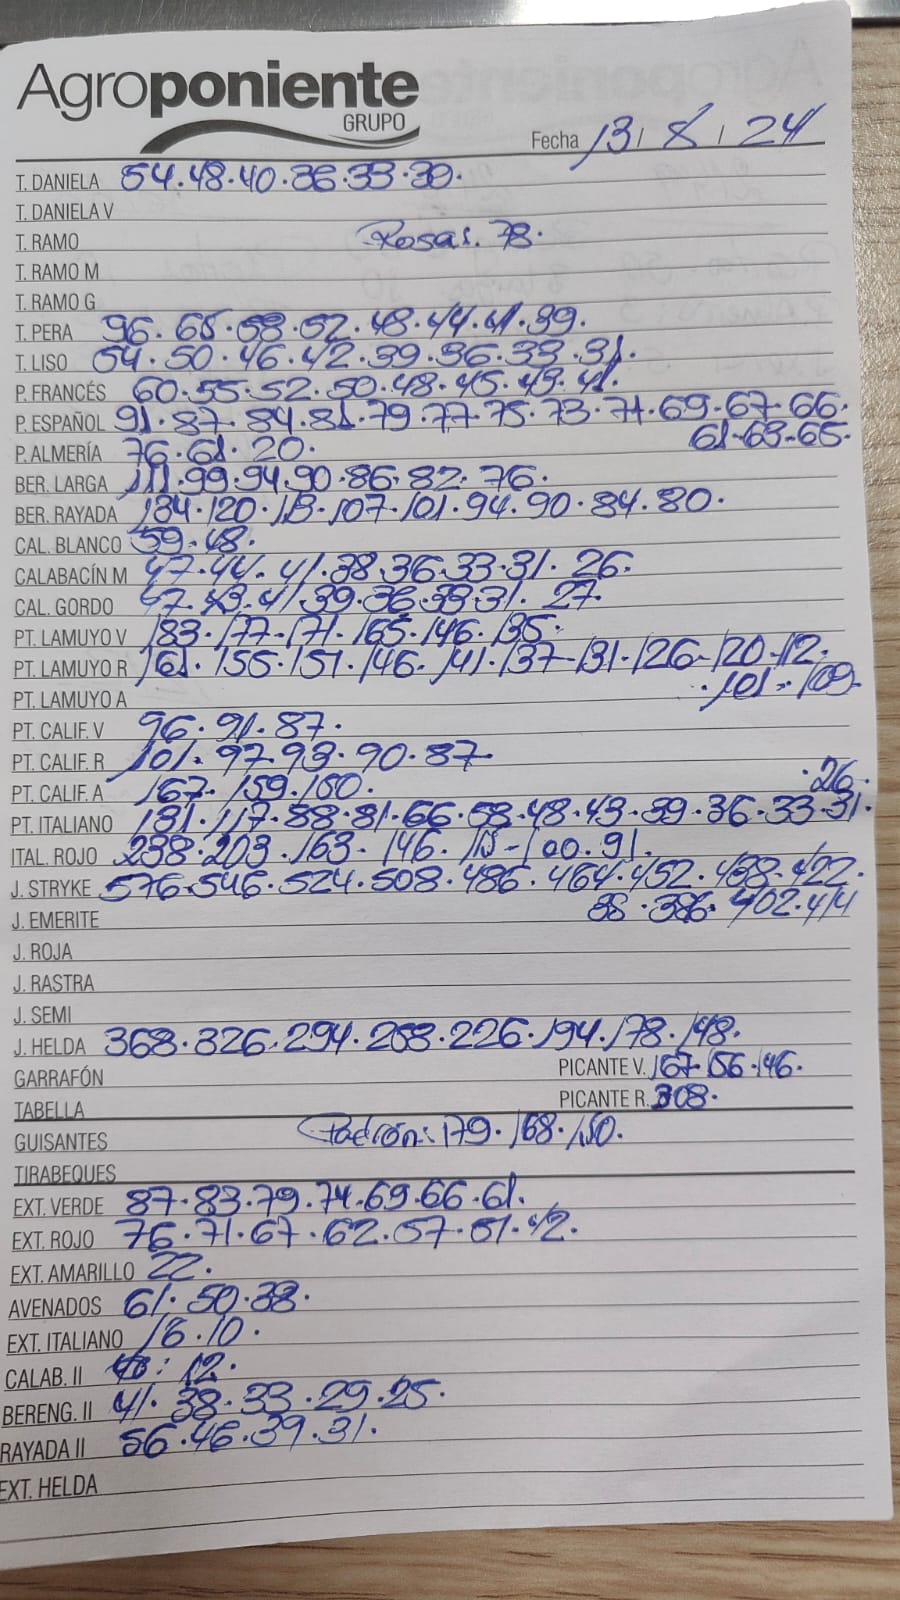 Agroponiente
GRUPO
Fecha 13 / 8 / 24
T. DANIELA 54.48.40.36.33.30.
T. DANIELA V
T. RAMO Rosas. 78.
T. RAMO M
T. RAMO G
T. PERA 96.65.58.52.48.44.41.39.
T. LISO 54.50.46.42.39.36.33.31.
P. FRANCÉS 60.55.52.50.48.45.43.41.
P. ESPAÑOL 91.87.84.81.79.77.75.73.71.69.67.66.
61-63-65.
P. ALMERÍA 76.61.20.
BER. LARGA 111.99.94.90.86.82.76.
BER. RAYADA 134.120.113.107.101.94.90.84.80.
CAL. BLANCO 59.48.
CALABACÍN M 47.44.41.38.36.33.31.26.
CAL. GORDO 47.43.41.39.36.33.31.27.
PT. LAMUYO V 183.177.171.165.146.135.
PT. LAMUYO R 161.155.151.146.141.137-131.126-120-112.
.101.109.
PT. LAMUYO A
PT. CALIF. V 96.91.87.
PT. CALIF. R 101.97.93.90.87.
PT. CALIF. A 167.159.150.
.26.
PT. ITALIANO 131.117.88.81.66.58.48.43.39.36.33.31.
ITAL. ROJO 238.203.163.146.115-100.91.
J. STRYKE 576.546.524.508.486.464.452.438.422.
.386.402.414
J. EMERITE
J. ROJA
J. RASTRA
J. SEMI
J. HELDA 368.326.294.258.226.194.178.148.
GARRAFÓN PICANTE V. 167.156.146.
TABELLA PICANTE R. 308.
GUISANTES Padrón: 179.168.150.
TIRABEQUES
EXT. VERDE 87.83.79.74.69.66.61.
EXT. ROJO 76.71.67.62.57.51.42.
EXT. AMARILLO 22.
AVENADOS 61.50.38.
EXT. ITALIANO 16.10.
CALAB. II 12.
BERENG. II 41.38.33.29.25.
RAYADA II 56.46.39.31.
EXT. HELDA